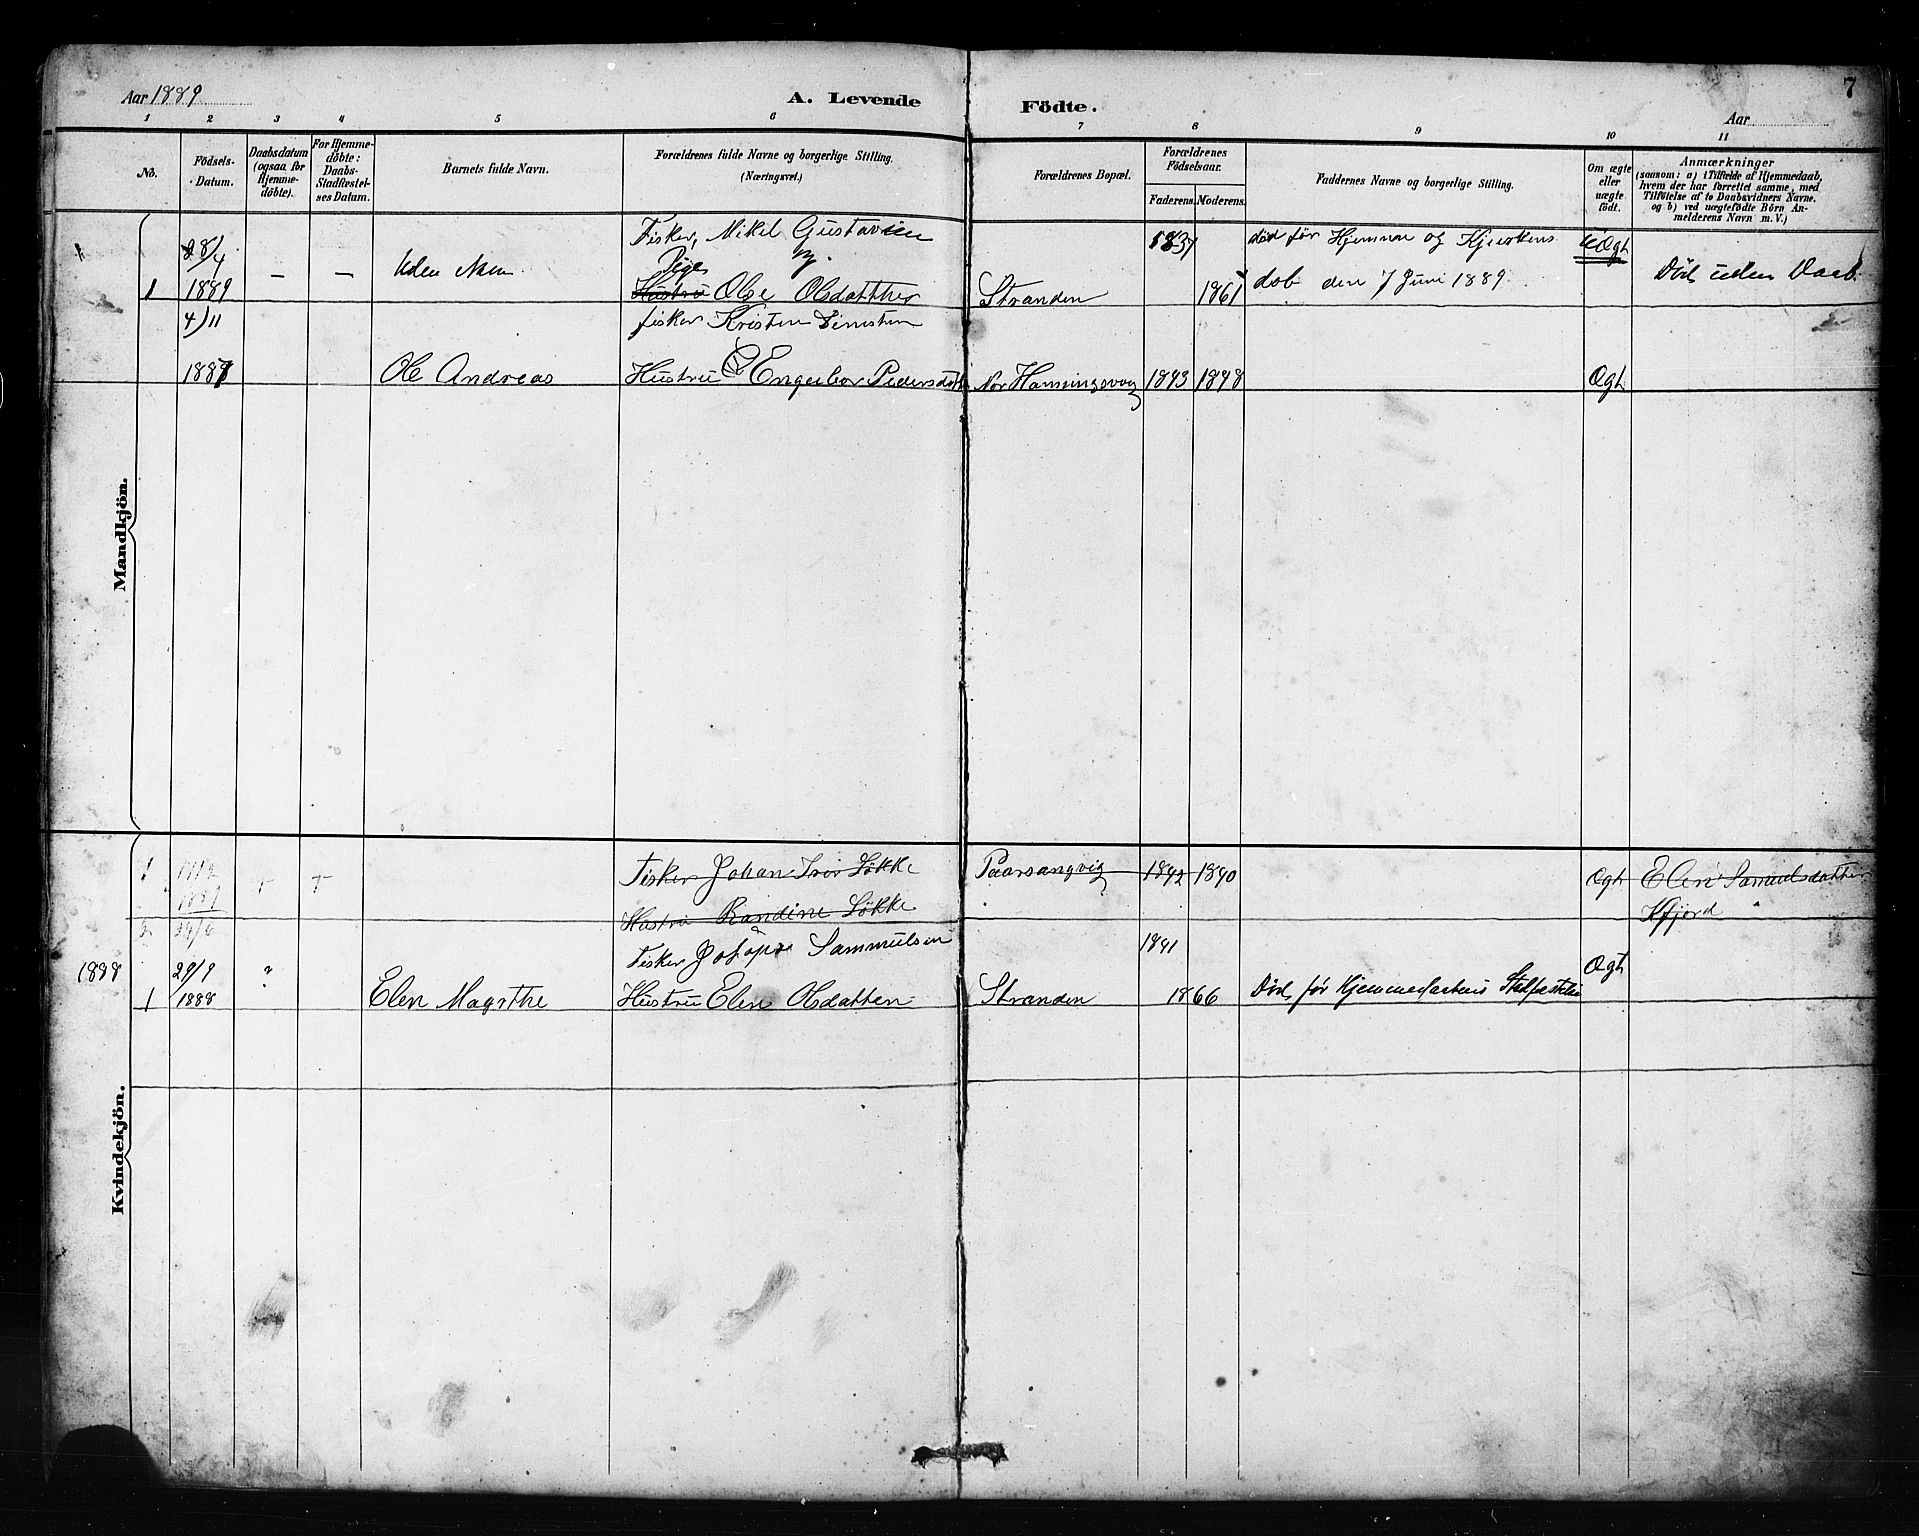 Aar 1889
A. Levende
Födte.
Aar
7
1 2 3 4 5 6 7 8 9 10 11
No.
Födsels-
Datum.
Daabsdatum
(ogsaa for
Hjemme-
döbte).
For Hjemme-
döbte:
Daabs-
Stadfæstel-
ses Datum.
Barnets fulde Navn.
Forældrenes fulde Navne og borgerlige Stilling.
(Næringsvei.)
Forældrenes Bopæl.
Forældrenes
Födselsaar.
Faderens. Moderens.
Faddernes Navne og borgerlige Stilling.
Om ægte
eller
uægte
födt.
Anmærkninger
(saasom: a) i Tilfælde af Hjemmedaab,
hvem der har forrettet samme, med
Tilföielse af to Daabsvidners Navne.
og b) ved uægtefödte Börn An-
melderens Navn m. V.)
Mandkjön.
1
28/4
1889
— —
Uden Navn
Fisker, Mikel Gustavsen
Pige
Hustru Olse Olsdatther
Stranden
1837
1861
død før Hjemme og Kjerkens
dob den 7 Juni 1889
UÆgt
Død uden Daab
4/11
1887
Ole Andreas
fisker Kristen
Hustru Engerbor Pedersdat
Nor Hamningsvog
1843 1848
Ægt
Kvindekjön.
1
1889
Fisker Johan Løkke
Hustru Randine Løkke
Paarsangvig
1842 1840
Ægt
Elen Samuelsdatter
Kfjord
2
29/6
1888
1
29/9
1888
?
Elen Magrthe
Fisker Sammulsen
Hustru Elen Olsdatten
Stranden
1841
1866
Død før Hjemmedaabens
Ægt